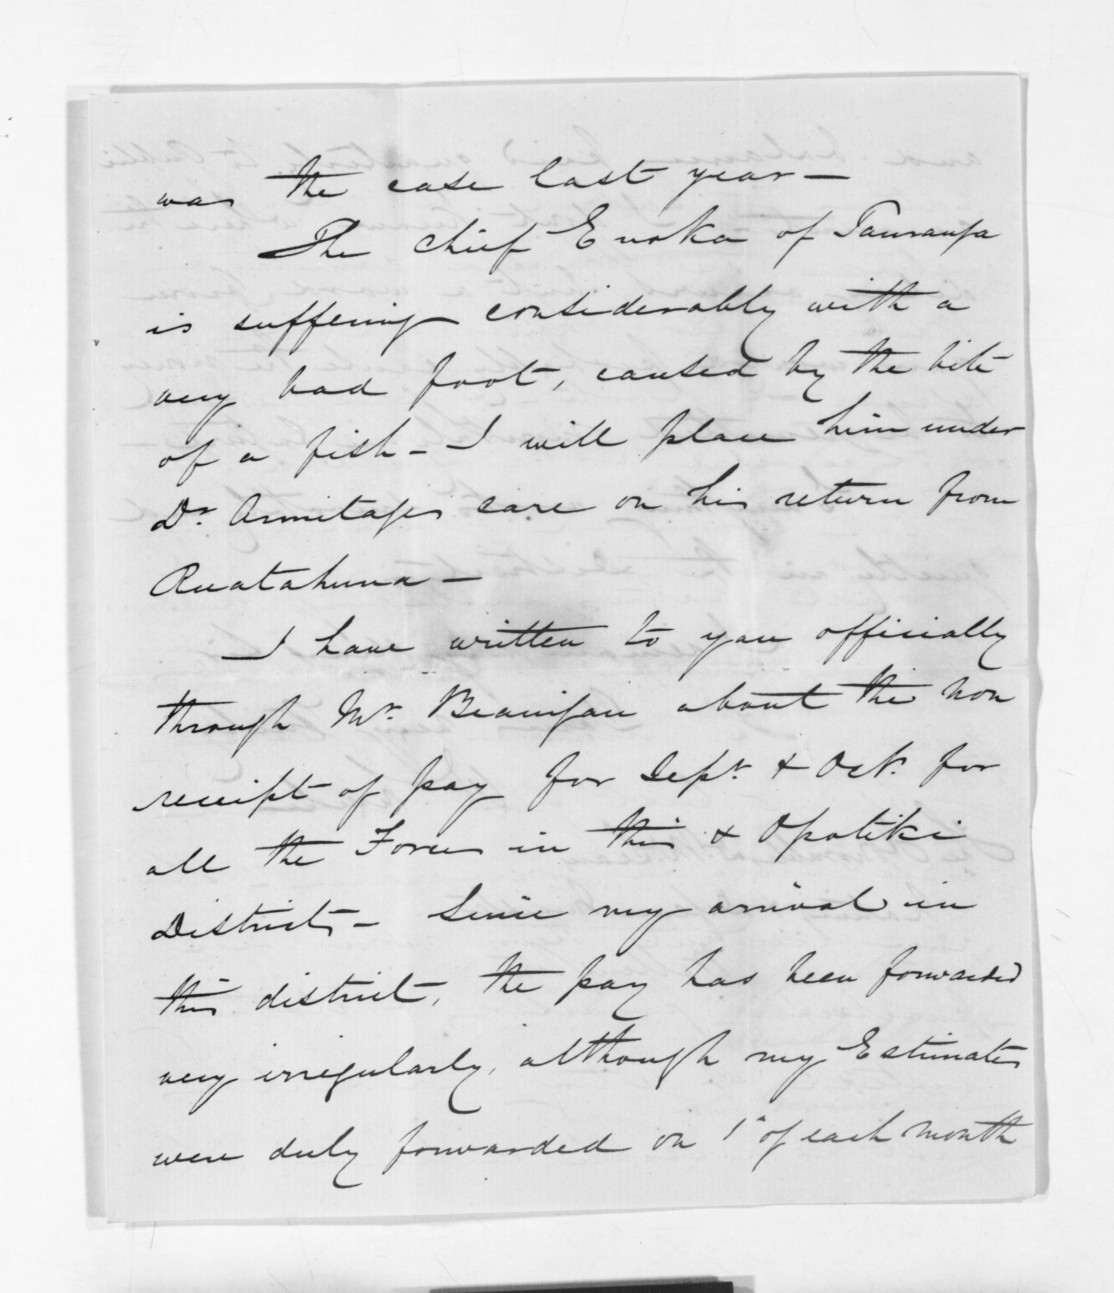 was the case last year —
The chief Enoka of Tauranga
is suffering considerably with a
very bad foot, caused by the bite
of a fish — I will place him under
Dr Armitage's care on his return from
Ruatahuna —
I have written to you officially
through Mr. about the non
receipt of pay for Sept. & Oct. for
all the Forces in this & Opotiki
Districts — Since my arrival in
this district, the pay has been forwarded
very irregularly, although my Estimates
were duly forwarded on 1st of each month